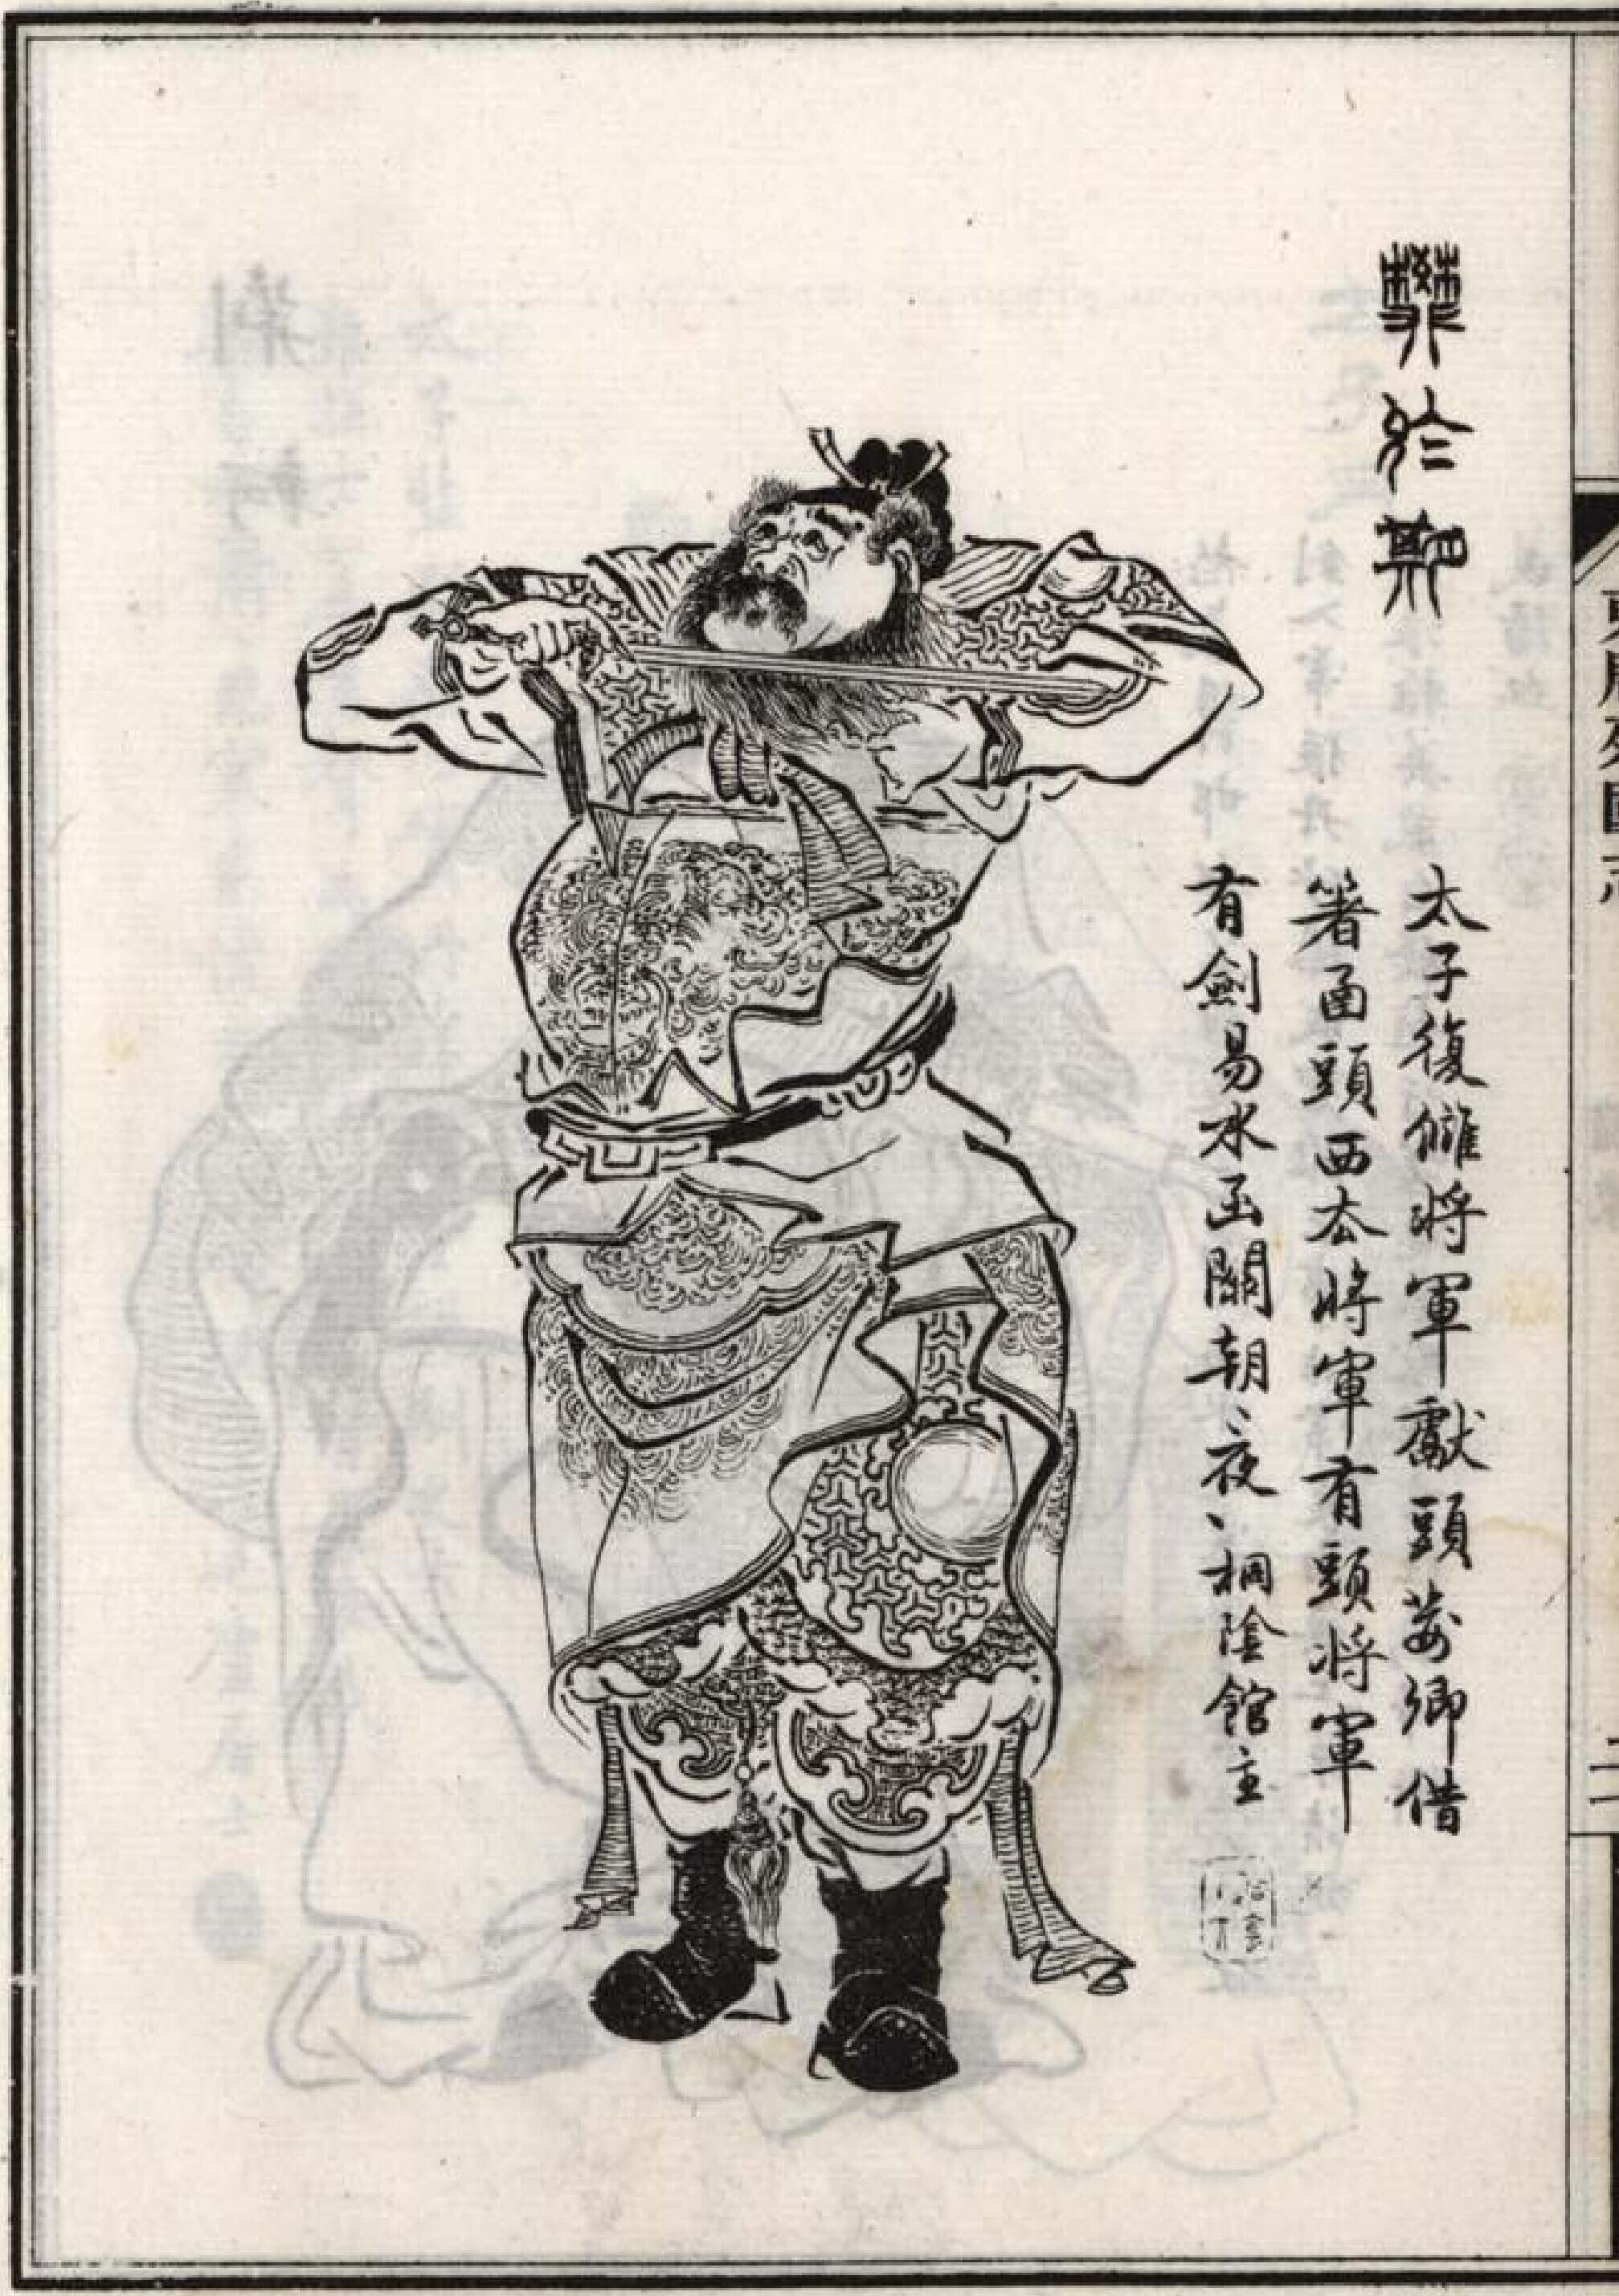 樊於期
太子復讎將軍獻頭荊卿借
箸函頭西去將軍有頭將軍
有劍易水函關朝、夜、桐陰館主